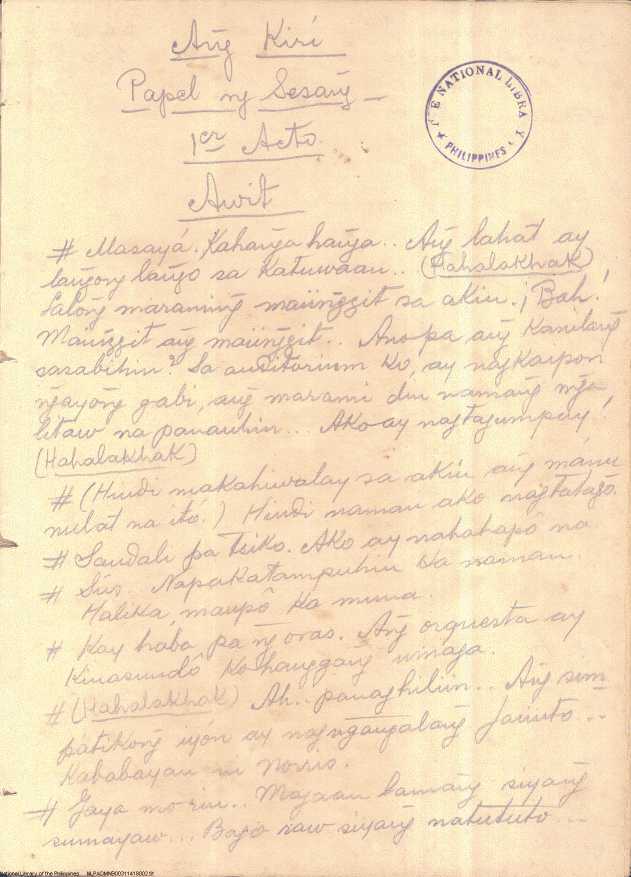 Ang̃ Kirí
Papel ng Sesang̃
1er Acto.
Awit
THE NATIONAL LIBRARY
PHILIPPINES
# Masayá. Kahang̃a hang̃a.. Ang̃ lahat ay
lang̃ong lang̃o sa katuwaan.. (Hahalakhak)
Lalong̃ maraming̃ maiing̃git sa akin. ¡Bah!
Maing̃git ang̃ maiing̃git.. Ano pa ang̃ kanilang̃
sasabihin? Sa auditorium ko, ay nagkaipon
ng̃ayong̃ gabi, ang̃ marami din namang̃ mg̃a
litaw na panauhin... Ako ay nagtagumpay!
(Hahalakhak)
# (Hindi makahiwalay sa akin ang̃
nulat na ito.) Hindi naman ako nagtatago.
# Sandali pa Tsiko. Ako ay nahahapô na
# Sús. Napakatampuhin ka naman.
Halika, maupô ka muna.
# Kay haba pa ng̃ oras. Ang̃ orquesta ay
kinasundô ko hanggang̃ umaga.
# (Hahalakhak) Ah.. panaghiliin.. Ang̃ sim
patikong̃ iyón ay nagng̃ang̃alang̃ Jacinto...
kababayan ni Norris.
# Gaya mo rin.. Mayaan lamang̃ siyang̃
sumayaw... Bago raw siyang̃ natututo...
National Library of the Philippines